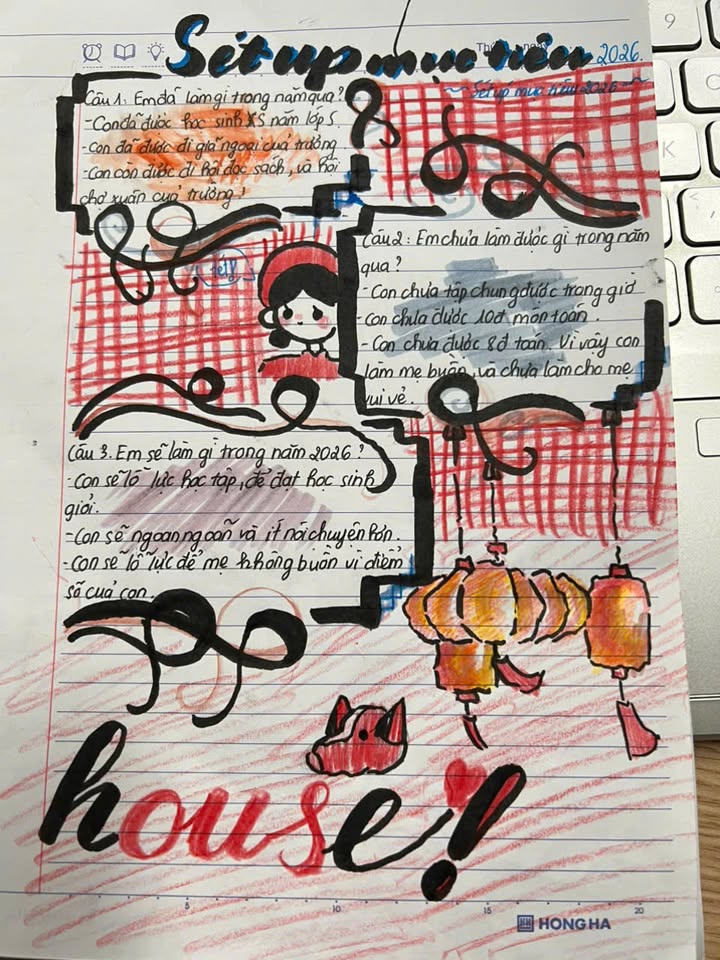 Set up mục tiêu 2026.
~ Set up mục tiêu 2026 ~
Câu 1. Em đã làm gì trong năm qua?
- Con đã được học sinh XS năm lớp 5.
- Con đã được đi giã ngoại cuả trường
- Con còn được đi hội đọc sách, và hội
chợ xuân cuả trường!
Câu 2: Em chưa làm được gì trong năm
qua?
- Con chưa tập chung được trong giờ
- Con chưa được 10đ môn toán.
- Con chưa được 8đ toán. Vì vậy con
làm mẹ buồn, và chưa làm cho mẹ
vui vẻ.
Câu 3. Em sẽ làm gì trong năm 2026?
- Con sẽ lỗ lực học tập, để đạt học sinh
giỏi.
- Con sẽ ngoan ngoãn và ít nói chuyện hơn.
- Con sẽ lỗ lực để mẹ không buồn vì điểm
số cuả con.
house!
5 10 15 20
HONG HA
9
K